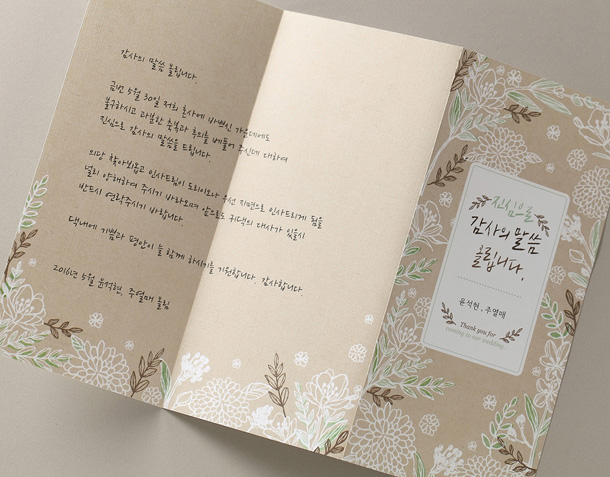 감사의 말씀 올립니다.
금번 5월 30일 저희 혼사에 바쁘신 가운데에도
불구하시고 과분한 축복과 후의를 베풀어 주신데 대하여
진심으로 감사의 말씀을 드립니다.
의당 찾아뵙고 인사드림이 도리이오나 우선 지면으로 인사드리게 됨을
널리 양해하여 주시기 바라오며 앞으로도 귀댁의 대사가 있을시
반드시 연락주시기 바랍니다.
댁내에 기쁨과 평안이 늘 함께 하시기를 기원합니다. 감사합니다.
2016년 5월 윤석현, 주열매 올림
진심으로
감사의 말씀
올립니다.
윤석현 . 주열매
Thank you for
coming to our wedding